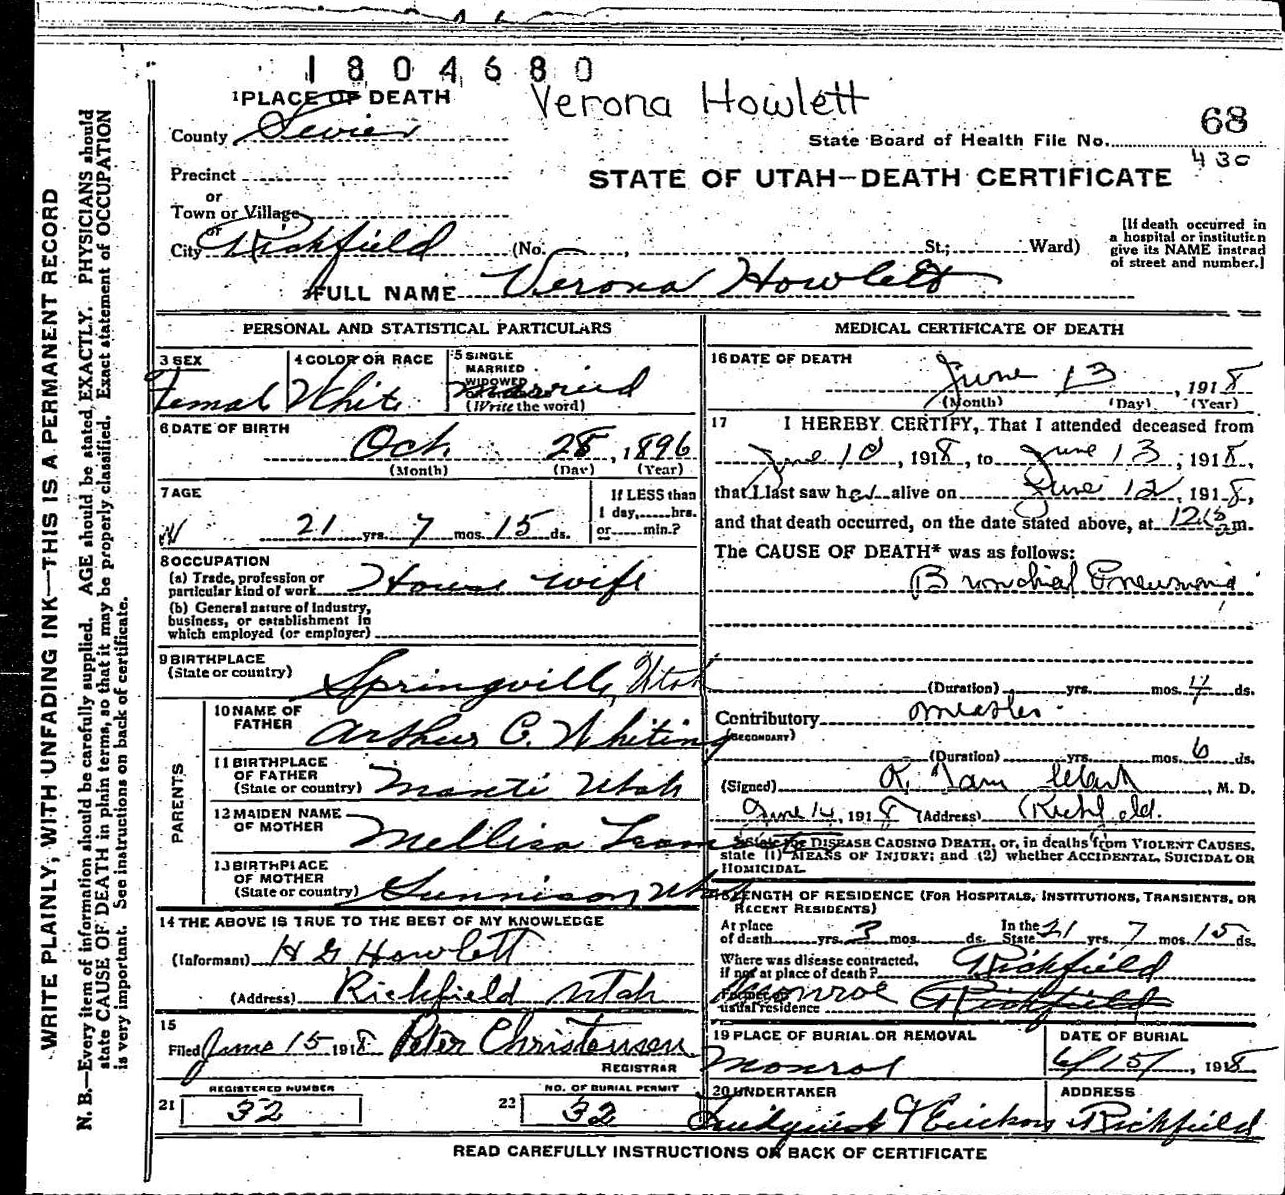 1804680
1 PLACE OF DEATH
Verona Howlett
County Sevier
State Board of Health File No. 68
430
Precinct
STATE OF UTAH—DEATH CERTIFICATE
or
Town or Village
or
City Richfield (No. , St.; Ward)
[If death occurred in
a hospital or institution
give its NAME instead
of street and number.]
2 FULL NAME Verona Howlett
PERSONAL AND STATISTICAL PARTICULARS
3 SEX
Femal
4 COLOR OR RACE
White
5 SINGLE
MARRIED
WIDOWED
married
(Write the word)
6 DATE OF BIRTH
Oct 28, 1896
(Month) (Day) (Year)
7 AGE
21 yrs. 7 mos. 15 ds.
If LESS than
1 day, hrs.
or min.?
8 OCCUPATION
(a) Trade, profession or
particular kind of work House wife
(b) General nature of industry,
business, or establishment in
which employed (or employer)
9 BIRTHPLACE
(State or country)
Springville, Utah
PARENTS
10 NAME OF
FATHER
Arthur C. Whiting
11 BIRTHPLACE
OF FATHER
(State or country) Manti Utah
12 MAIDEN NAME
OF MOTHER
Mellisa
13 BIRTHPLACE
OF MOTHER
(State or country) Gunnison Utah
14 THE ABOVE IS TRUE TO THE BEST OF MY KNOWLEDGE
(Informant) H G Howlett
(Address) Richfield Utah
15
Filed June 15 1918 Peter Christensen
REGISTRAR
REGISTERED NUMBER
21 32
NO. OF BURIAL PERMIT
22 32
MEDICAL CERTIFICATE OF DEATH
16 DATE OF DEATH
June 13, 1918
(Month) (Day) (Year)
17 I HEREBY CERTIFY, That I attended deceased from
June 10, 1918, to June 13, 1918,
that I last saw her alive on June 12, 1918,
and that death occurred, on the date stated above, at m.
The CAUSE OF DEATH* was as follows:
Bronchial Pneumonia
(Duration) yrs. mos. 4 ds.
Contributory measles
(SECONDARY)
(Duration) yrs. mos. 6 ds.
(Signed) , M. D.
June 14, 1918 (Address) Richfield.
*State the DISEASE CAUSING DEATH, or, in deaths from VIOLENT CAUSES,
state (1) MEANS OF INJURY; and (2) whether ACCIDENTAL, SUICIDAL OR
HOMICIDAL.
18 LENGTH OF RESIDENCE (FOR HOSPITALS, INSTITUTIONS, TRANSIENTS, OR
RECENT RESIDENTS)
At place
of death yrs. 3 mos. ds. In the State 21 yrs. 7 mos. 15 ds.
Where was disease contracted,
if not at place of death? Richfield
Former or
usual residence Monroe Richfield
19 PLACE OF BURIAL OR REMOVAL
Monroe
DATE OF BURIAL
6/15/, 1918
20 UNDERTAKER
ADDRESS
Richfield
READ CAREFULLY INSTRUCTIONS ON BACK OF CERTIFICATE
WRITE PLAINLY, WITH UNFADING INK—THIS IS A PERMANENT RECORD
N. B.—Every item of information should be carefully supplied. AGE should be stated EXACTLY. PHYSICIANS should
state CAUSE OF DEATH in plain terms, so that it may be properly classified. Exact statement of OCCUPATION
is very important. See instructions on back of certificate.